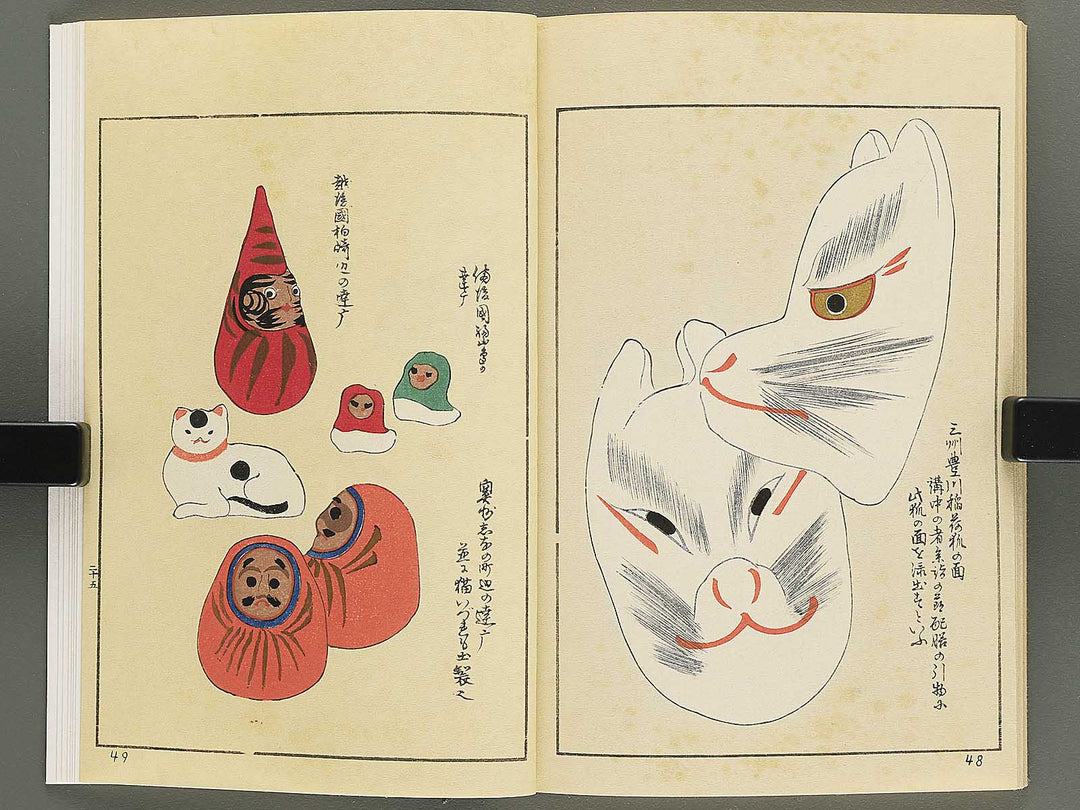 三州豊川稲荷狐の面
講中の者参詣の節配膳の引物に
此狐の面を添出すといふ
48
備後國福山の
達广
越後國柏崎辺の達广
奥州志の町辺の達广
並に猫いづれも土製也
二十五
49